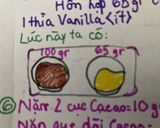 Hỗn hợp 65 gr c
1 thìa Vanilla (ít)
Lúc này ta có:
100 gr 65 gr
⑥ Nặn 2 cục Cacao: 10 g
Cacao